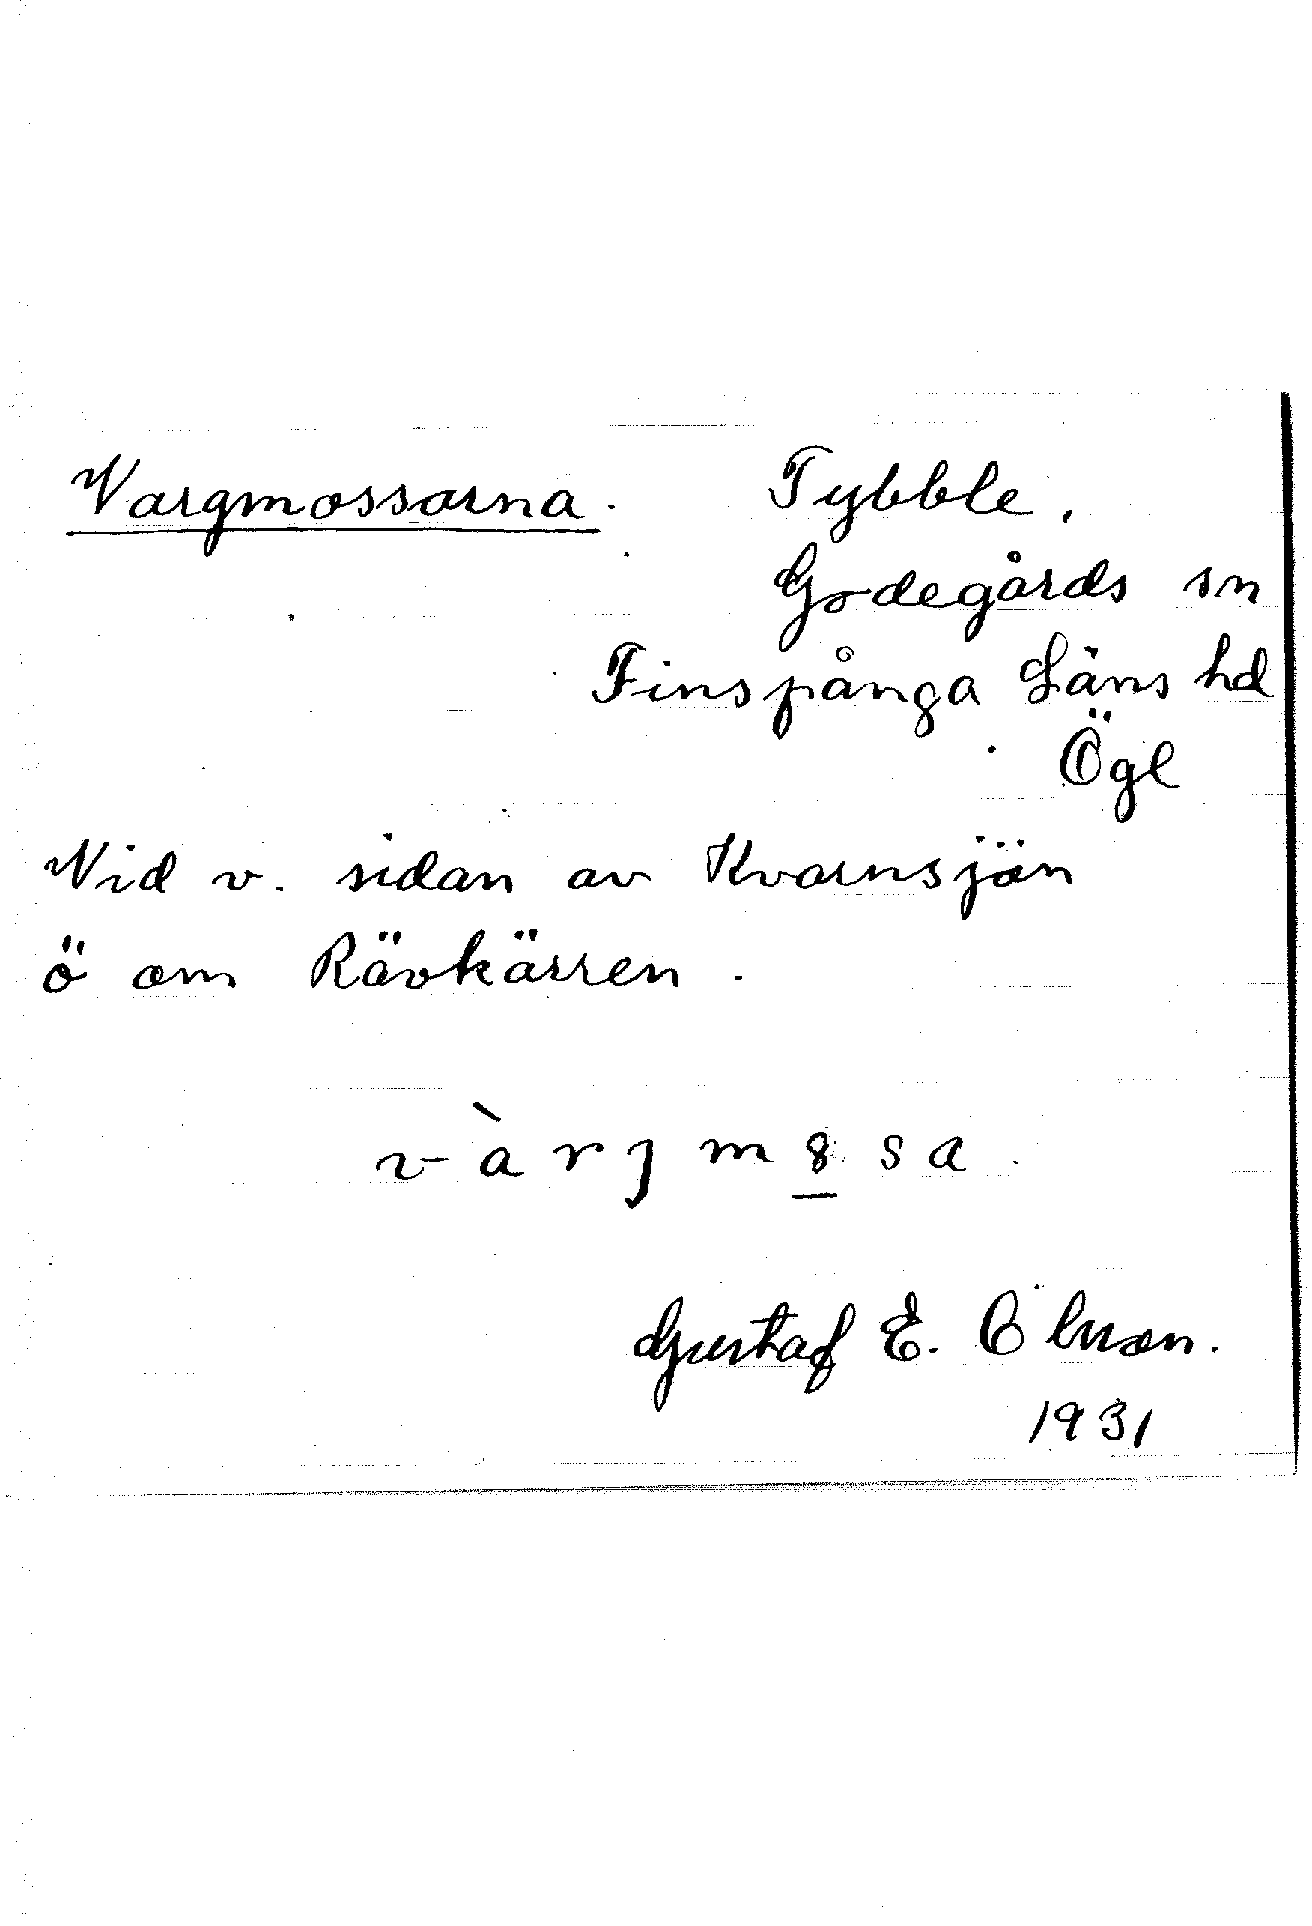 Vargmossarna. Tybble,
Godegårds sn
Finspånga Läns hd
Ögl
Vid v. sidan av Kvarnsjön
ö om Rävkärren.
vàrjm8sa
Gustaf E. Olsson.
1931